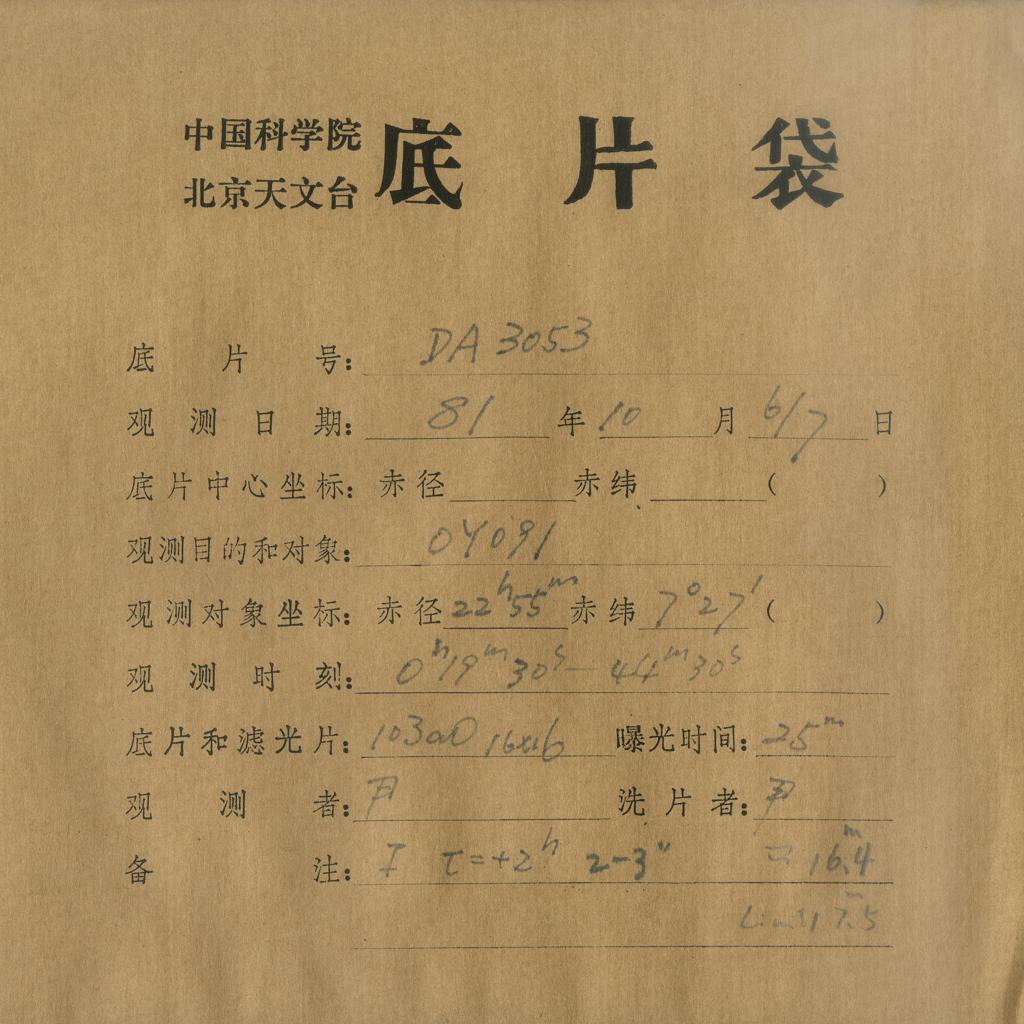 中国科学院
北京天文台
底片袋
底片号: DA 3053
观测日期: 81 年 10 月 6/7 日
底片中心坐标: 赤径 赤纬 ( )
观测目的和对象: 04091
观测对象坐标: 赤径 22h55m 赤纬 7°27′ ( )
观测时刻: 0h19m30s — 44m30s
底片和滤光片: 103aO 16x16 曝光时间: 25m
观测者: 尹 洗片者: 尹
备注: I τ=+2h 2-3″ 16.4m
Limit 17.5m